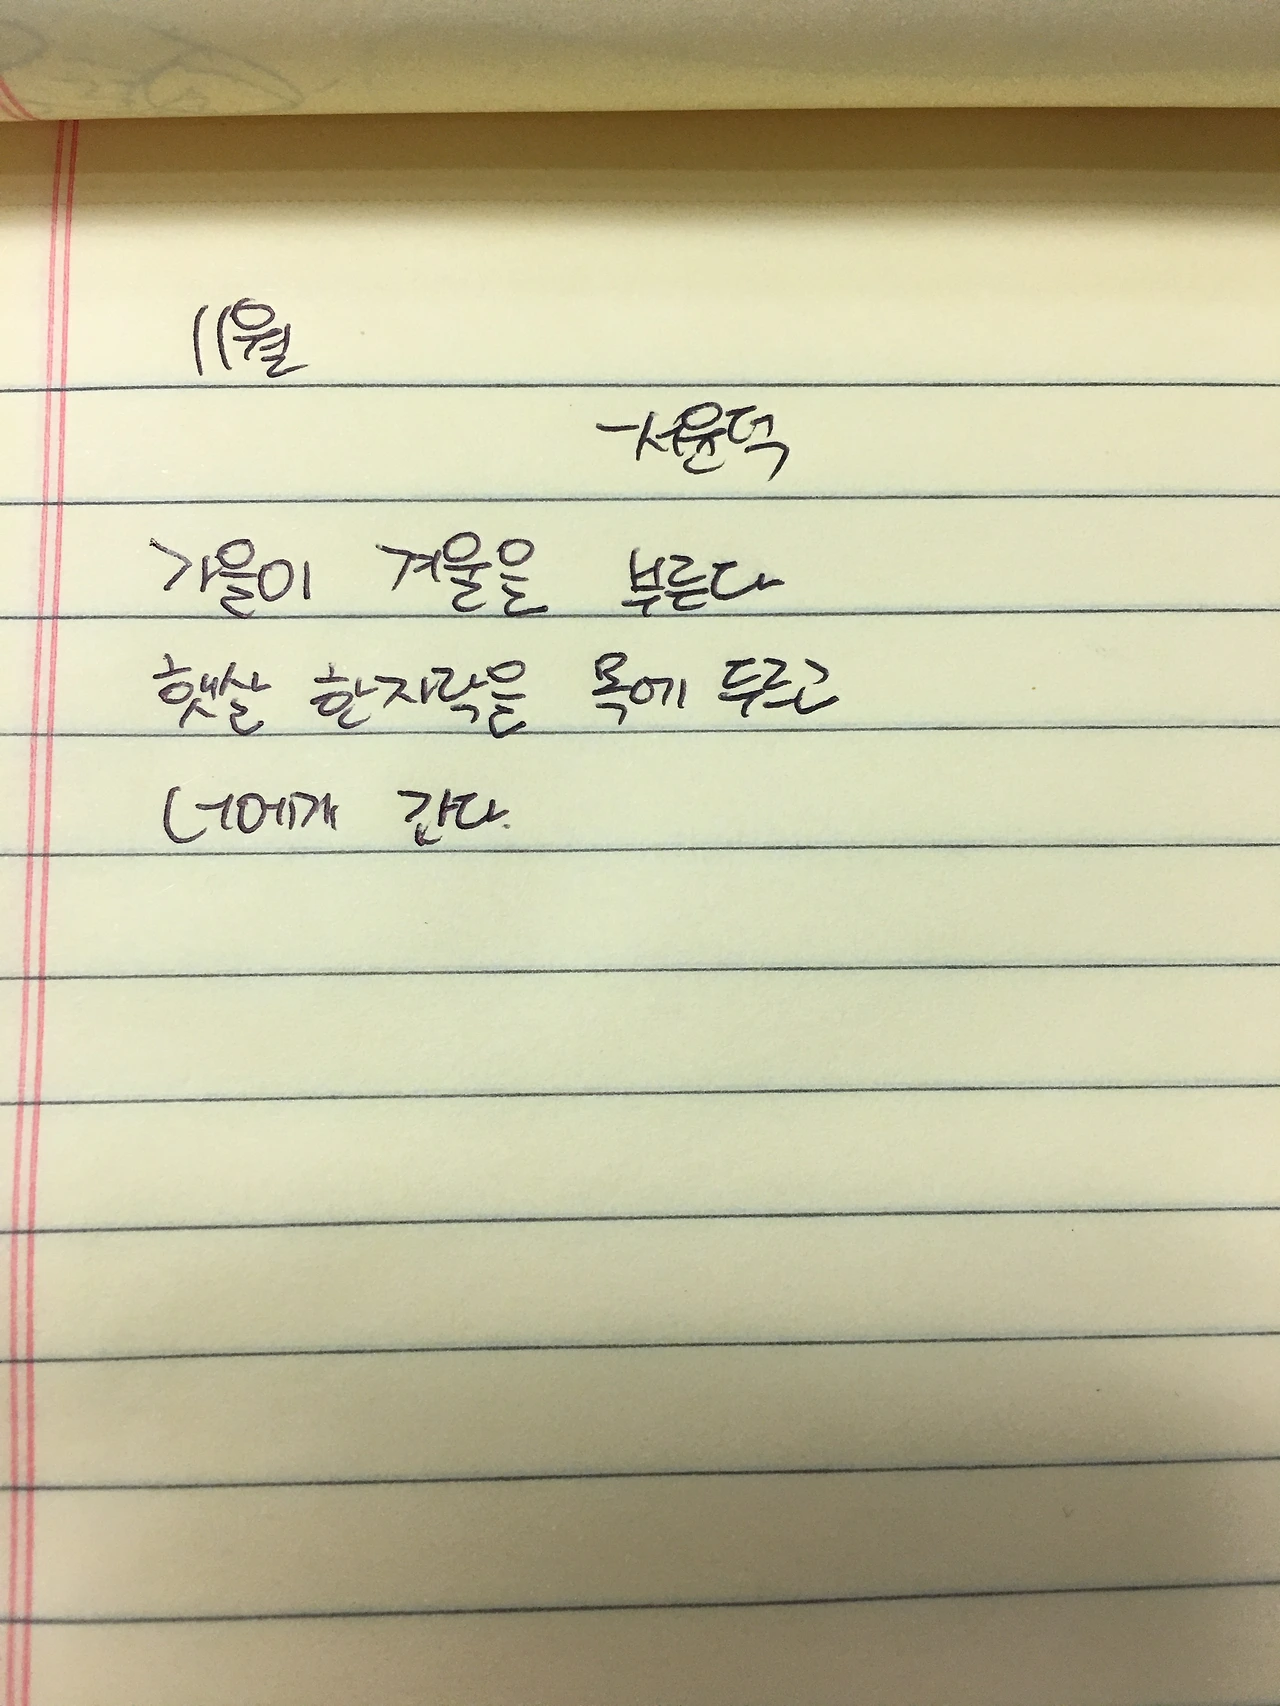 11월
-서윤덕
가을이 겨울을 부른다
햇살 한자락을 목에 두르고
너에게 간다.